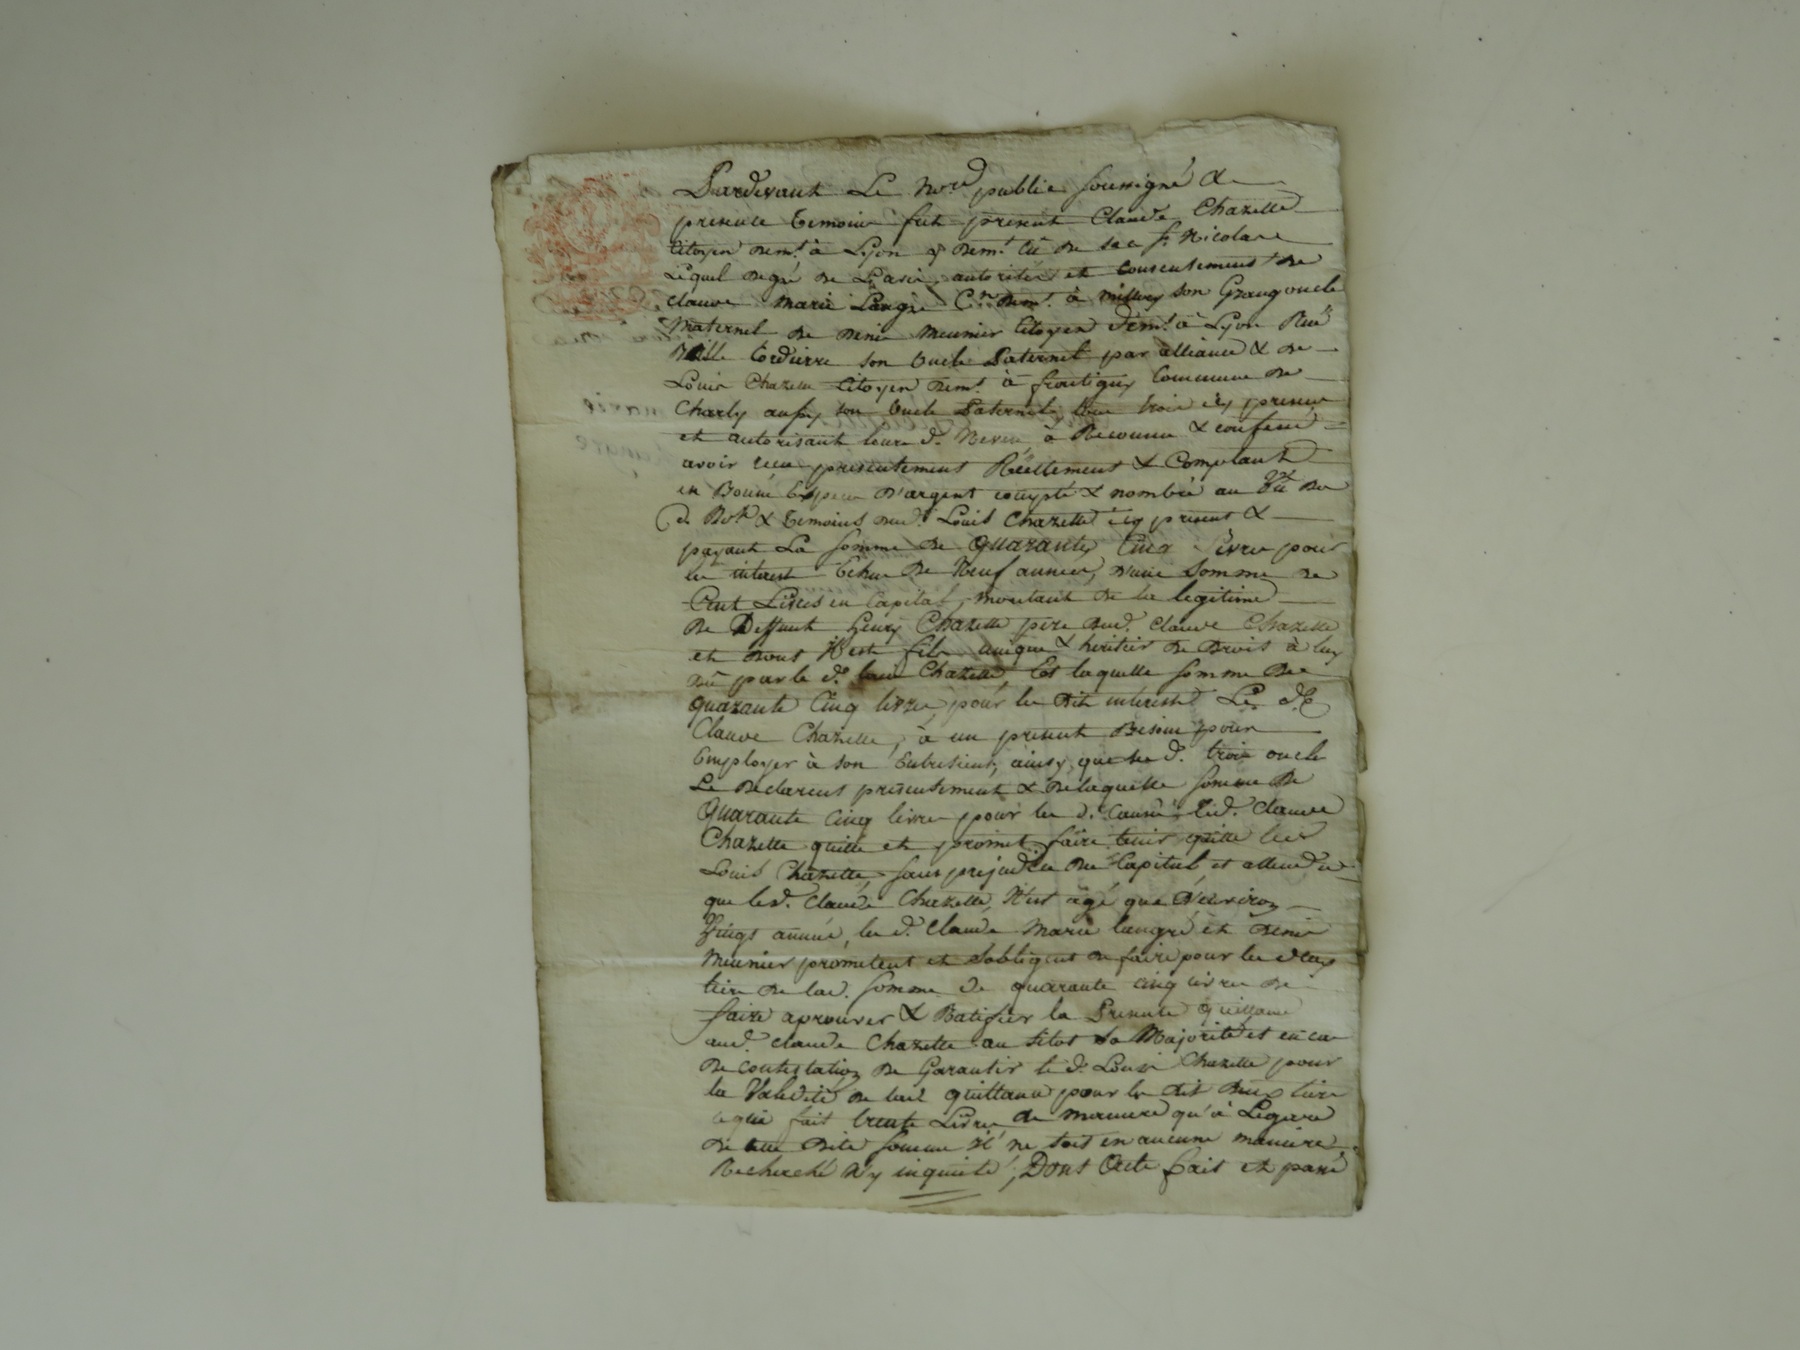 Pardevant Le Nore public soussigné &
presence temoins fut present Claude Chazette
Citoyen demt. à Lyon & demt. de St Nicolas
Lequel de gré de L'avis, autorité et consentement de
Claude Marie Langre Cn. demt. à millery son Grang oncle
Maternel de Denis Meunier Citoyen demt. à Lyon Rue
son Oncle Paternel par alliance & de
Louis Chazette Citoyen demt à frontigny Commune de
Charly aussy son Oncle Paternel, tous trois icy present
et autorisant leure d. Neveu, a Reconnu & confessé
avoir reçu presentement Réellement & Comptant
en Bonne Espece d'argent compté & nombré au Vu de
d. Nore & temoins dud. Louis Chazette icy present &
payant La somme de quarante Cinq Livres pour
les interest Echus de Neuf années, d'une Somme de
Cent Livres en Capital, montant de la legitime
de Deffunt henry Chazette pere dud. Claude Chazette
et dont Il est fils unique & heritier de Droit à luy
du par le d. Louis Chazette, Et laquelle somme de
quarante Cinq livres, pour les dit interest Le d.
Claude Chazette, à un present Besoin pour
Employer à son Entretient, ainsy que ses d. trois oncle
Le Declarent presentement & de laquelle somme de
Quarante Cinq livres pour les d. Led. Claude
Chazette quitte et promet faire tenir quitte led
Louis Chazette, sans prejudice du Capital, et attendu
que led. Claude Chazette, N'est âgé que d'environ
Vingt année, les d. Claude Marie langre et Denis
Meunier prometent et soblignt de faire pour les deux
tiers de lad. somme de quarante cinq livres de
faire aprouver & Ratifier la Presente Quittance
aud. Claude Chazette au sitot sa Majorité et en cas
de contestation de Garantir le d. Louis Chazette pour
la Validité de lad quittance pour les dit deux tiers
ce qui fait trente Livres, de maniere qu'à Legard
de cette dite somme Il ne soit en aucune maniere
Recherché N'y inquieté; Dont Acte fait et passé